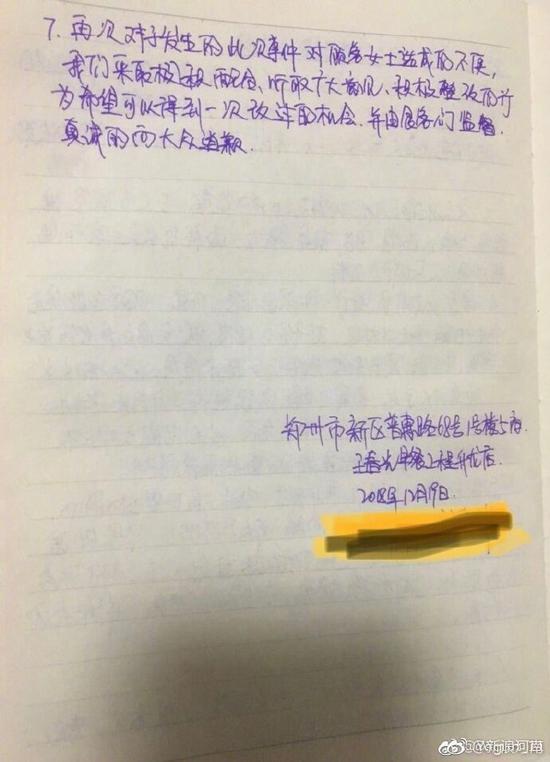 7. 再次对于发生的此次事件对顾客女士造成的不便,
我们采取积极配合、听取广大意见、积极整改的行
为希望可以得到一次改进的机会.并由顾客们监督.
真诚的向大众道歉.
郑州市新区普惠路68号1号楼5店.
2018年12月19日.
@新浪河南